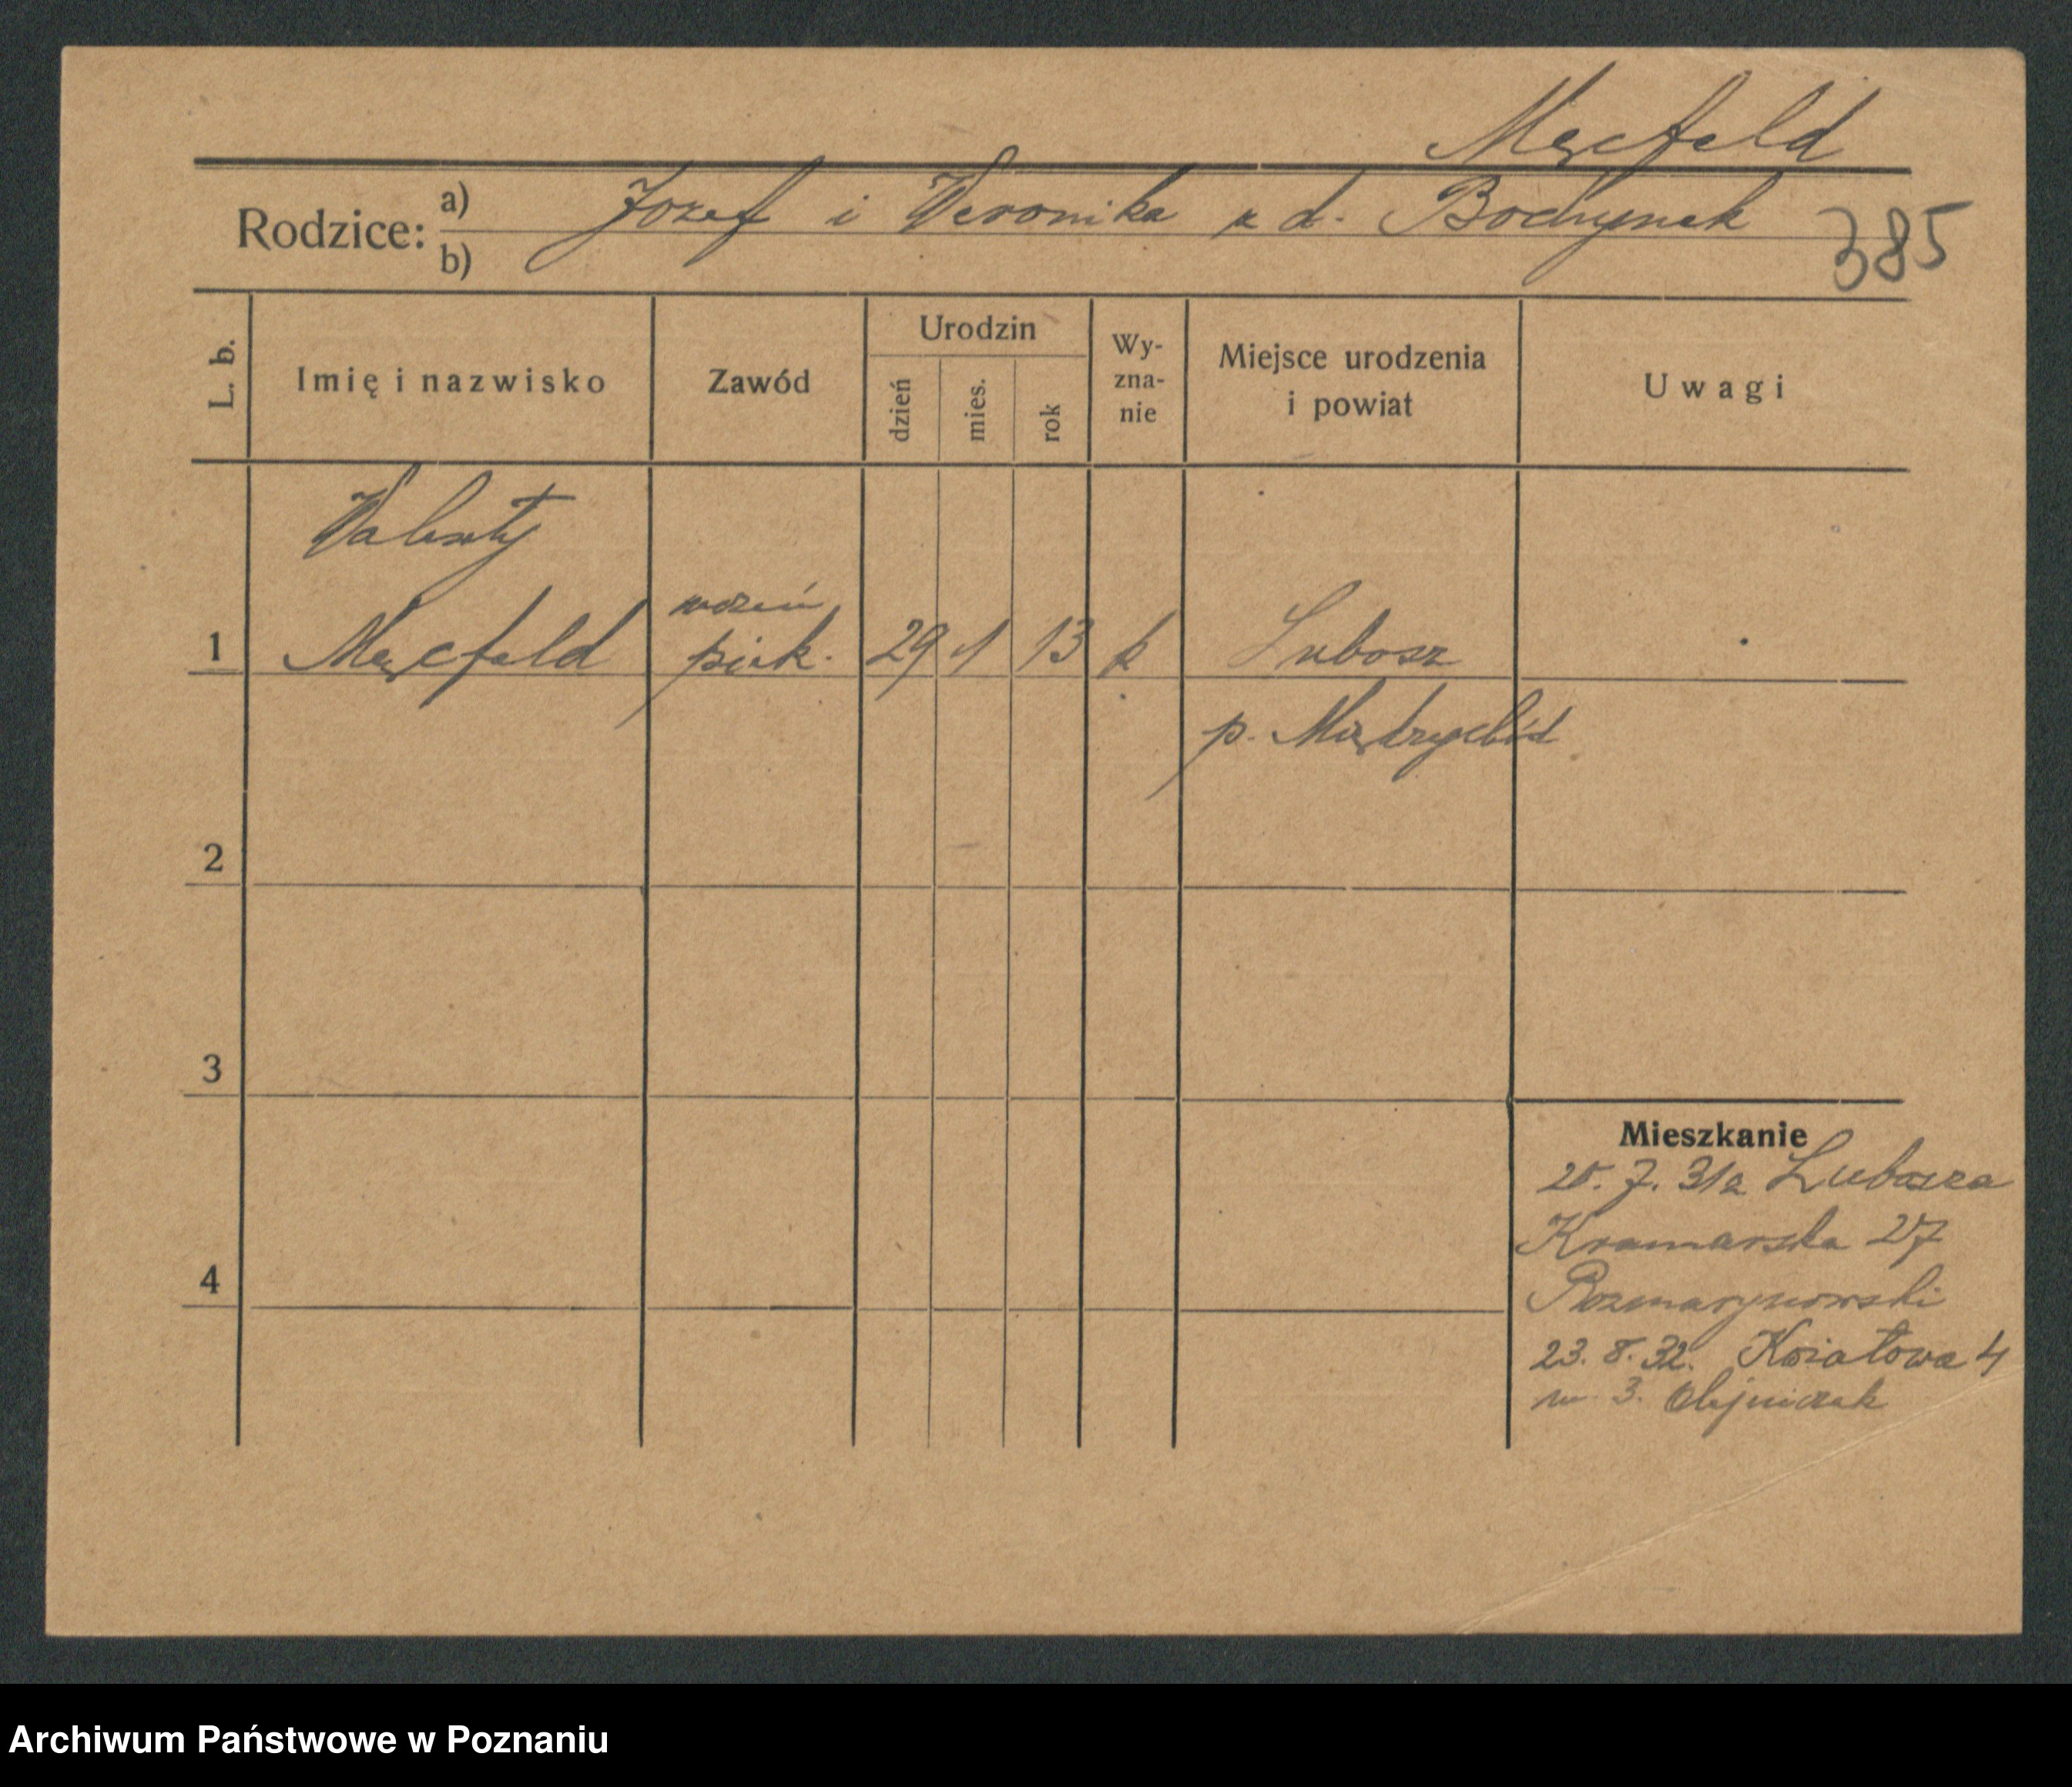 Męcfeld
Rodzice: a) Józef i Weronika z d. Bochynek
b)
385
L. b.
Imię i nazwisko
Zawód
Urodzin
dzień
mies.
rok
Wy-
zna-
nie
Miejsce urodzenia
i powiat
Uwagi
Walenty
uczeń
1 Męcfeld piek. 29 1 13 k Lubosz
p. Międzychód
2
3
4
Mieszkanie
20. 7. 31 z Lubosza
Kramarska 27
Rozmarynowski
23. 8. 32. Kwiatowa 4
m 3. Olejniczak
Archiwum Państwowe w Poznaniu